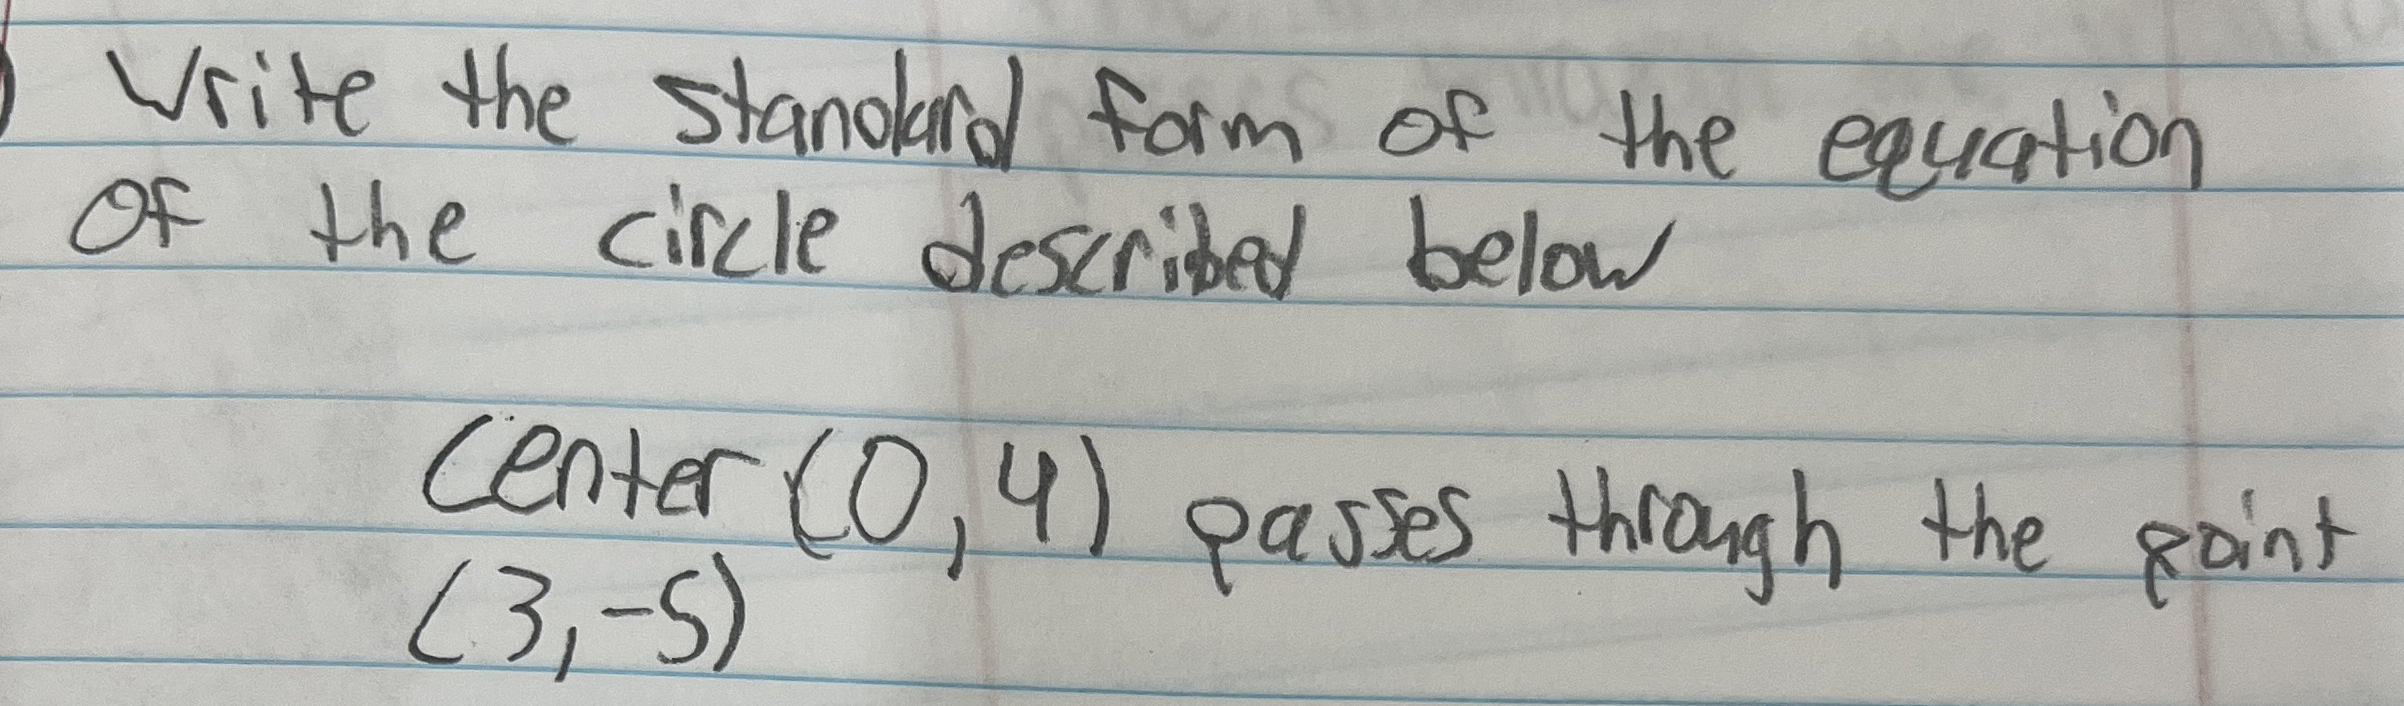 ) Write the standard form of the equation
Of the circle described below
Center (0,4) passes through the point
(3,-5)